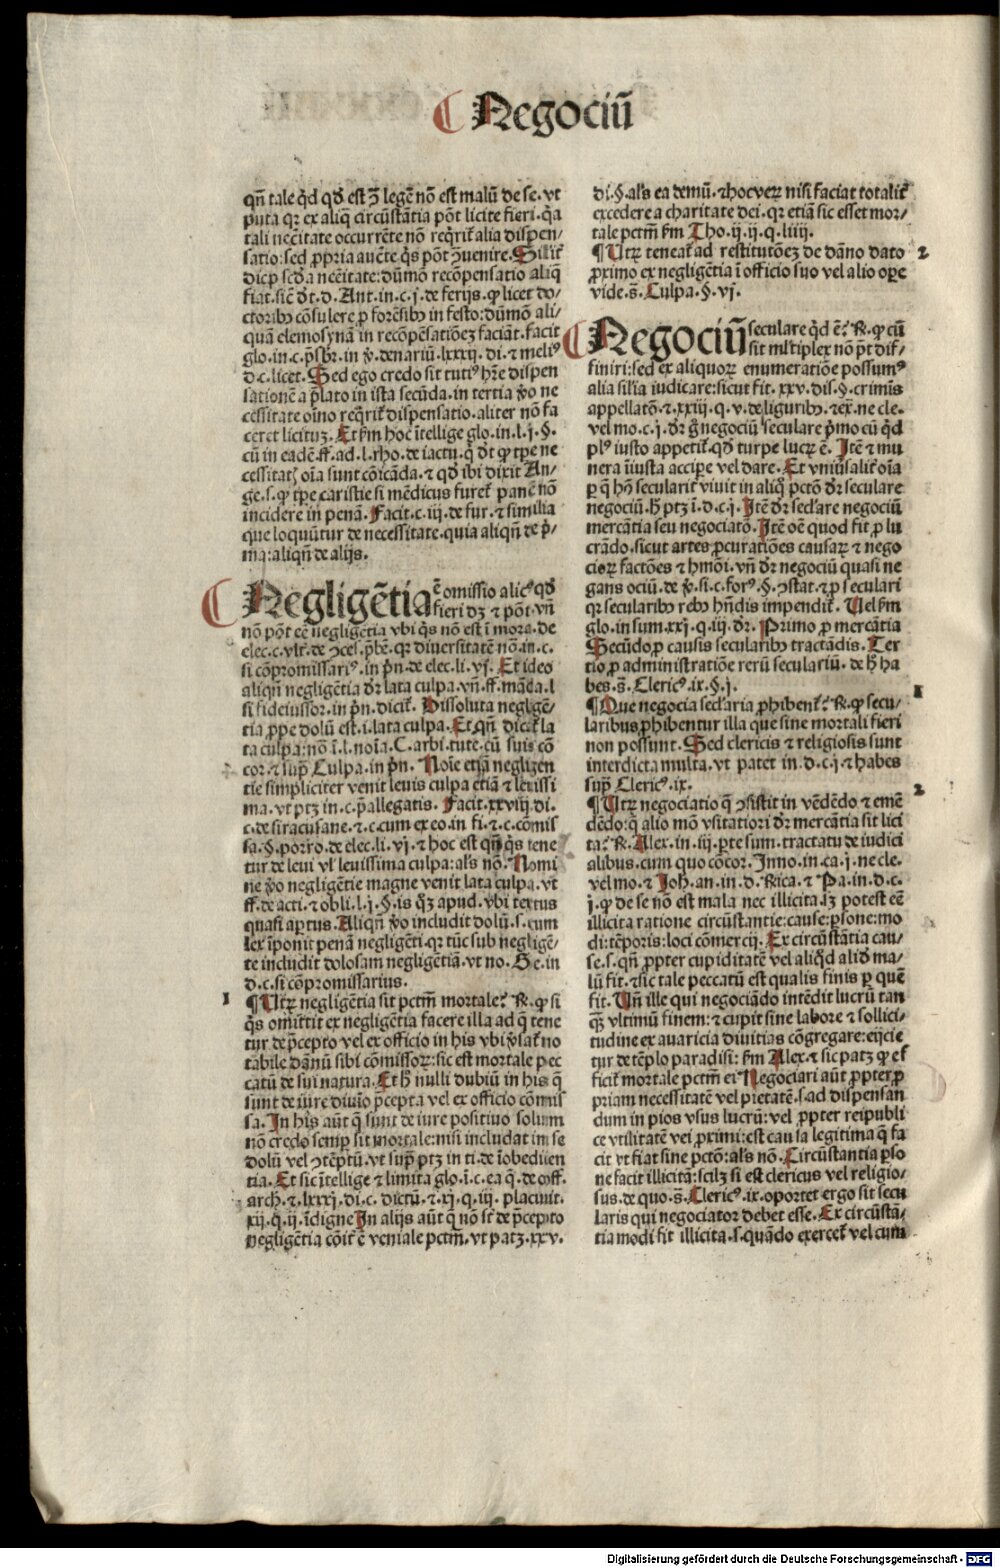 Negociū
qñ tale qd qđ est ꝯ legē nō est malū de se. vt
puta qꝛ ex aliq̄ circūstātia pōt licite fieri. q̄a
tali necītate occurrēte nō reqrit̄ alia dispen-
satio: sed ꝓpria auc̄te q̄s pōt ꝯuenire. Silit̄
dicēduꝫ necītate: dūmō recōpensatio aliq̄
fiat. sic̄ dt. d. Ant. in. c. j. de ferijs. ꝙ licet do-
ctoribꝰ cōsulere ꝓ forēsibꝰ in festo: dūmō ali/
quā elemosynā in recōpēsatiōeꝫ faciāt. facit
glo. in. c. pr̄sbr̄. in ꝟ. denariū. lxxxij. di. ⁊ meliꝰ
d. c. licet. Sed ego credo sit tutiꝰ hr̄e dispen
sationē a p̄lato in ista secūda. in tertia ꝟo ne
cessitate oīno reqrit̄ dispensatio. aliter nō fa
ceret licituꝫ. Et ẜm hoc ītellige glo. in. l. j. §.
cū in eadē. ff. ad. l. rho. de iactu. q̄ dt ꝙ tpe ne
cessitatꝭ oīa sunt cōicāda. ⁊ qđ ibi dixit An-
ge. s. ꝙ tpe caristie si mēdicus furet̄ panē nō
incidere in penā. Facit. c. iij. de fur. ⁊ similia
que loquūtur de necessitate. quia aliqñ de p̄-
ma: aliqñ de alijs.
Negligētia ē omissio alicꝰ qđ
fieri dꝫ ⁊ pōt. vñ
nō pōt eē negligētia vbi q̄s nō est ī mora. de
elec. c. vlt̄. de ꝯces. p̄bē. qꝛ diuersitatē nō. in. c.
si cōpromissariꝰ. in pn̄. de elec. li. vj. Et ideo
aliqñ negligētia dr̄ lata culpa. vñ. ff. māda. l.
si fideiussor. in pn̄. dicit̄. Dissoluta negligē-
tia ꝓpe dolū est. i. lata culpa. Et qñ dicit̄ la
ta culpa: nō ī. l. noīa. C. arbi. tute. cū suis cō
cor. ⁊ supͣ Culpa. in pn̄. Noīe etiā negligen
tie simpliciter venit leuis culpa etiā ⁊ leuissi
ma. vt ptꝫ in. c. p̄allegatis. Facit. xxviij. di.
c. de siracusane. ⁊. c. cum ex eo. in fi. ⁊. c. cōmis
sa. §. porro. de elec. li. vj. ⁊ hoc est qñ q̄s tene
tur de leui vl̓ leuissima culpa: al̓s nō. Nomi
ne ꝟo negligētie magne venit lata culpa. vt
ff. de acti. ⁊ obli. l. j. §. is qꝫ apud. vbi textus
quasi aptus. Aliqñ ꝟo includit dolū. s. cum
lex īponit penā negligēti. qꝛ tūc sub negligē-
te includit dolosam negligētiā. vt no. Ge. in
d. c. si cōpromissarius.
1
¶ Utꝝ negligētia sit pctm̄ mortale? ℞. ꝙ si
q̄s omittit ex negligētia facere illa ad q̄ tene
tur de p̄cepto vel ex officio in his vbi ꝟsat̄ no
tabile dānū sibi cōmissoꝝ: sic est mortale pec
catū de sui natura. Et h̄ nulli dubiū in his q̄
sunt de iure diuīo p̄cepta vel ex officio cōmis
sa. In his aūt q̄ sunt de iure positiuo solum
nō credo semp sit mortale: nisi includat in se
dolū vel ꝯtēptū. vt supͣ ptꝫ in ti. de īobedien
tia. Et sic ītellige ⁊ limita glo. ī. c. ea q̄. de off.
arch. ⁊. lxxxj. di. c. dictū. ⁊. xj. q. iij. placuit.
xij. q. ij. īdigne In alijs aūt q̄ nō sr̄ de p̄cepto
negligētia cōit̄ ē veniale pctm̄. vt patꝫ. xxv.
di. §. al̓s ea demū. ⁊ hoc veꝝ nisi faciat totalit̄
excedere a charitate dei. qꝛ etiā sic esset mor/
tale pctm̄ ẜm Tho. ij. ij. q. liiij.
¶ Utꝝ teneat̄ ad restitutōeꝫ de dāno dato 2
ꝓximo ex negligētia ī officio suo vel alio oꝑe
vide. s̄. Culpa. §. vj.
Negociū seculare qd ē? ℞. ꝙ cū
sit ml̓tiplex nō pt dif/
finiri: sed ex aliquoꝝ enumeratiōe possumꝰ
alia sil̓ia iudicare: sicut fit. xxv. dis. §. crimīs
appellatō. ⁊. xxiij. q. v. de liguribꝰ. ⁊ ex. ne cle.
vel mo. c. j. dr̄ g̊ negociū seculare p̄mo cū qd
plꝰ iusto appetit̄. qđ turpe lucꝝ ē. Itē ⁊ mu
nera īiusta accipe vel dare. Et vniūsalit̄ oīa
ꝑ q̄ hō secularit̄ viuit in aliq̄ pctō dr̄ seculare
negociū. h̄ ptꝫ ī. d. c. j. Itē dr̄ secl̓are negociū
mercātia seu negociatō. Itē oē quod fit ꝓ lu
crādo. sicut artes ꝓcuratiōes causaꝝ ⁊ nego
cioꝝ factōes ⁊ hmōi. vñ dr̄ negociū quasi ne
gans ociū. de ꝟ. si. c. forꝰ. §. ꝯstat. ⁊ ꝓ seculari
qꝛ secularibꝰ rebꝰ hn̄dis impendit̄. Uel ẜm
glo. in sum. xxj. q. iij. dr̄. Primo ꝓ mercātia
Secūdo ꝓ causis secularibꝰ tractādis. Ter
tio ꝓ administratiōe rerū seculariū. de h̄ ha
bes. s̄. Clericꝰ. ix. §. j.
1
¶ Que negocia secl̓aria ꝓhibent̄? ℞. ꝙ secu-
laribus ꝓhibentur illa que sine mortali fieri
non possunt. Sed clericis ⁊ religiosis sunt
interdicta multa. vt patet in. d. c. j. ⁊ habes
supͣ Clericꝰ. ix.
2
¶ Utꝝ negociatio q̄ ꝯsistit in vēdēdo ⁊ emē
dēdo: q̄ alio mō vsitatiori dr̄ mercātia sit lici
ta? ℞. Alex. in. iij. ꝑte sum. tractatu de iudici
alibus. cum quo cōcor. Inno. in ca. j. ne cle.
vel mo. ⁊ Joh. an. in. d. Rica. ⁊ Pa. in. d. c.
j. ꝙ de se nō est mala nec illicita. lꝫ potest eē
illicita ratione circūstantie: cause: ꝑsone: mo
di: tēporis: loci: cōmercij. Ex circūstātia cau/
se. s. qñ ꝓpter cupiditatē vel aliqd aliđ ma/
lū fit. ⁊ sic tale peccatū est qualis finis ꝑ quē
fit. Uñ ille qui negociādo intēdit lucrū tan
qꝫ vltimū finem: ⁊ cupit sine labore ⁊ sollici/
tudine ex auaricia diuitias cōgregare: eijcie
tur de tēplo paradisi: ẜm Alex. ⁊ sic patꝫ ꝙ ef
ficit̄ mortale pctm̄ ei Negociari aūt ꝓpter ꝓ
priam necessitatē vel pietatē. s. ad dispensan
dum in pios vsus lucrū: vel ꝓpter reipubli
ce vtilitatē vel ꝓximi: est causa legitima q̄ fa
cit vt fiat sine pctō: al̓s nō. Circūstantia ꝑso
ne facit illicitā: scilꝫ si est clericus vel religio/
sus. de quo. s̄. Clericꝰ. ix. oportet ergo sit secu
laris qui negociator debet esse. Ex circūstā-
tia modi fit illicita. s. quādo exercet̄ vel cum